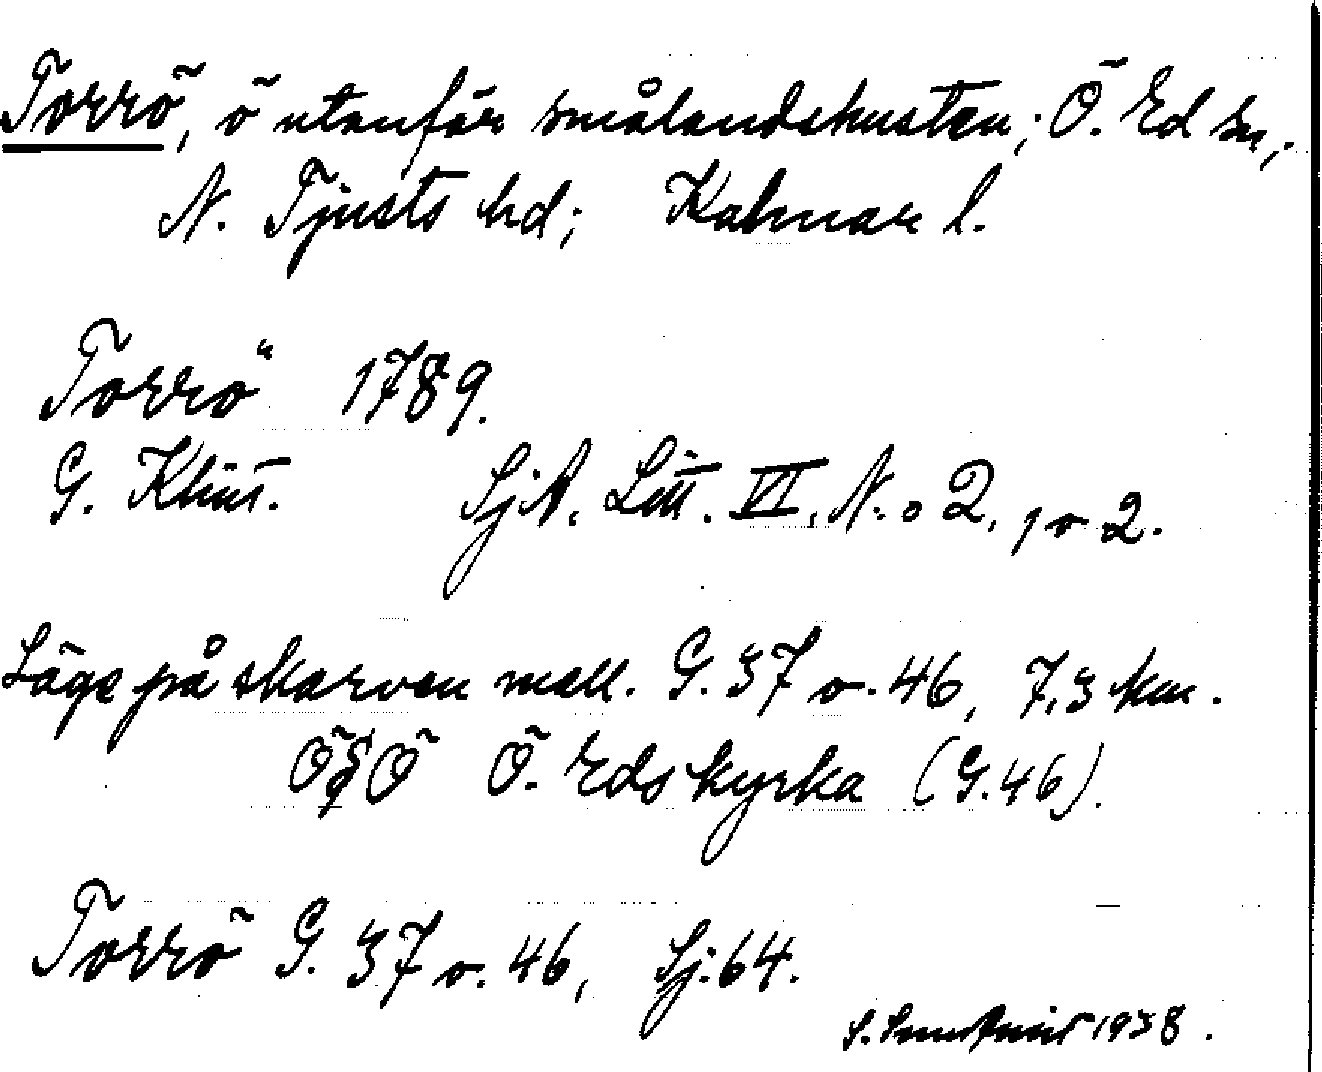 Torrö, ö utanför smålandskusten; Ö. Ed sn,
N. Tjusts hd; Kalmar l.
Torrö 1789.
G. Klint. SjA. Litt. VI. N.o 2, 1 o 2.
Läge på skarven mell. G. 37 o. 46, 7,3 km.
ÖSÖ Ö. Eds kyrka (G. 46).
Torrö G. 37 o. 46, Sj. 64.
S. 1938.